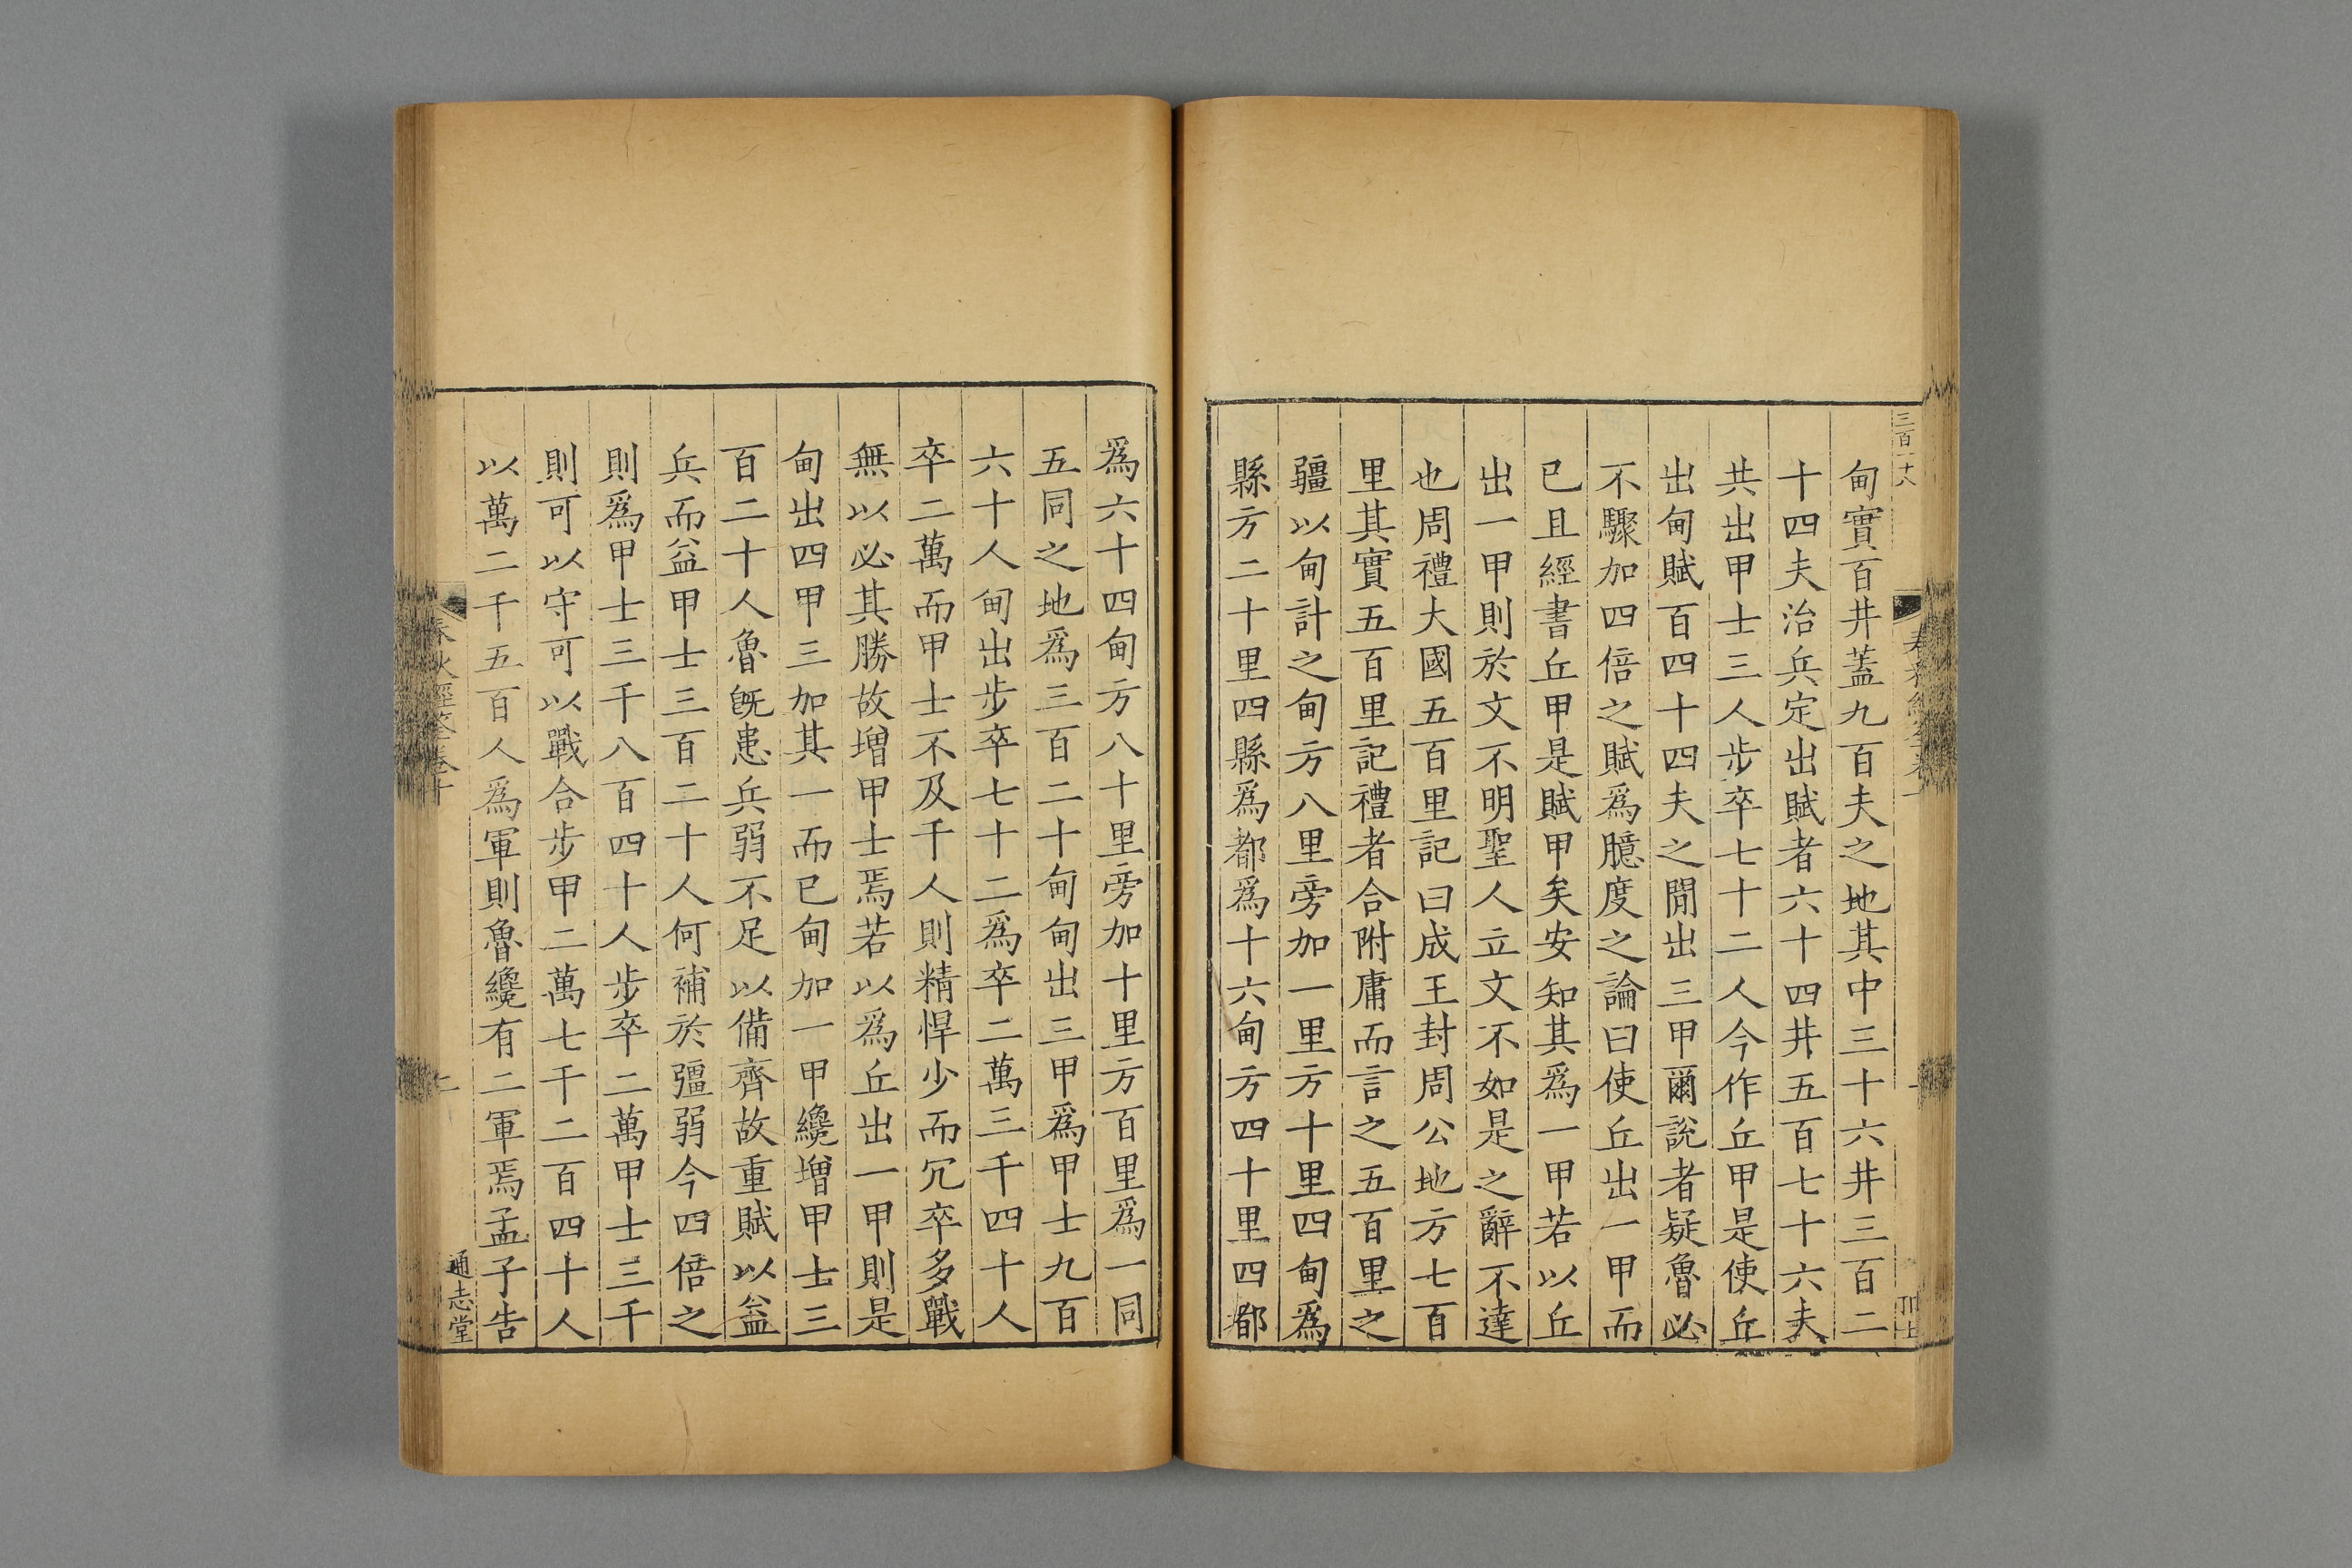 三百一十八
甸實百井蓋九百夫之地其中三十六井三百二
十四夫治兵定出賦者六十四井五百七十六夫
共出甲士三人步卒七十二人今作丘甲是使丘
出甸賦百四十四夫之閒出三甲爾說者疑魯必
不驟加四倍之賦爲臆度之論曰使丘出一甲而
已且經書丘甲是賦甲矣安知其爲一甲若以丘
出一甲則於文不明聖人立文不如是之辭不達
也周禮大國五百里記曰成王封周公地方七百
里其實五百里記禮者合附庸而言之五百里之
疆以甸計之甸方八里旁加一里方十里四甸爲
縣方二十里四縣爲都爲十六甸方四十里四都
爲六十四甸方八十里旁加十里方百里爲一同
五同之地爲三百二十甸甸出三甲爲甲士九百
六十人甸出步卒七十二爲卒二萬三千四十人
卒二萬而甲士不及千人則精悍少而冗卒多戰
無以必其勝故增甲士焉若以爲丘出一甲則是
甸出四甲三加其一而已甸加一甲纔增甲士三
百二十人魯旣患兵弱不足以備齊故重賦以益
兵而益甲士三百二十人何補於彊弱今四倍之
則爲甲士三千八百四十人步卒二萬甲士三千
則可以守可以戰合步甲二萬七千二百四十人
以萬二千五百人爲軍則魯纔有二軍焉孟子告
通志堂